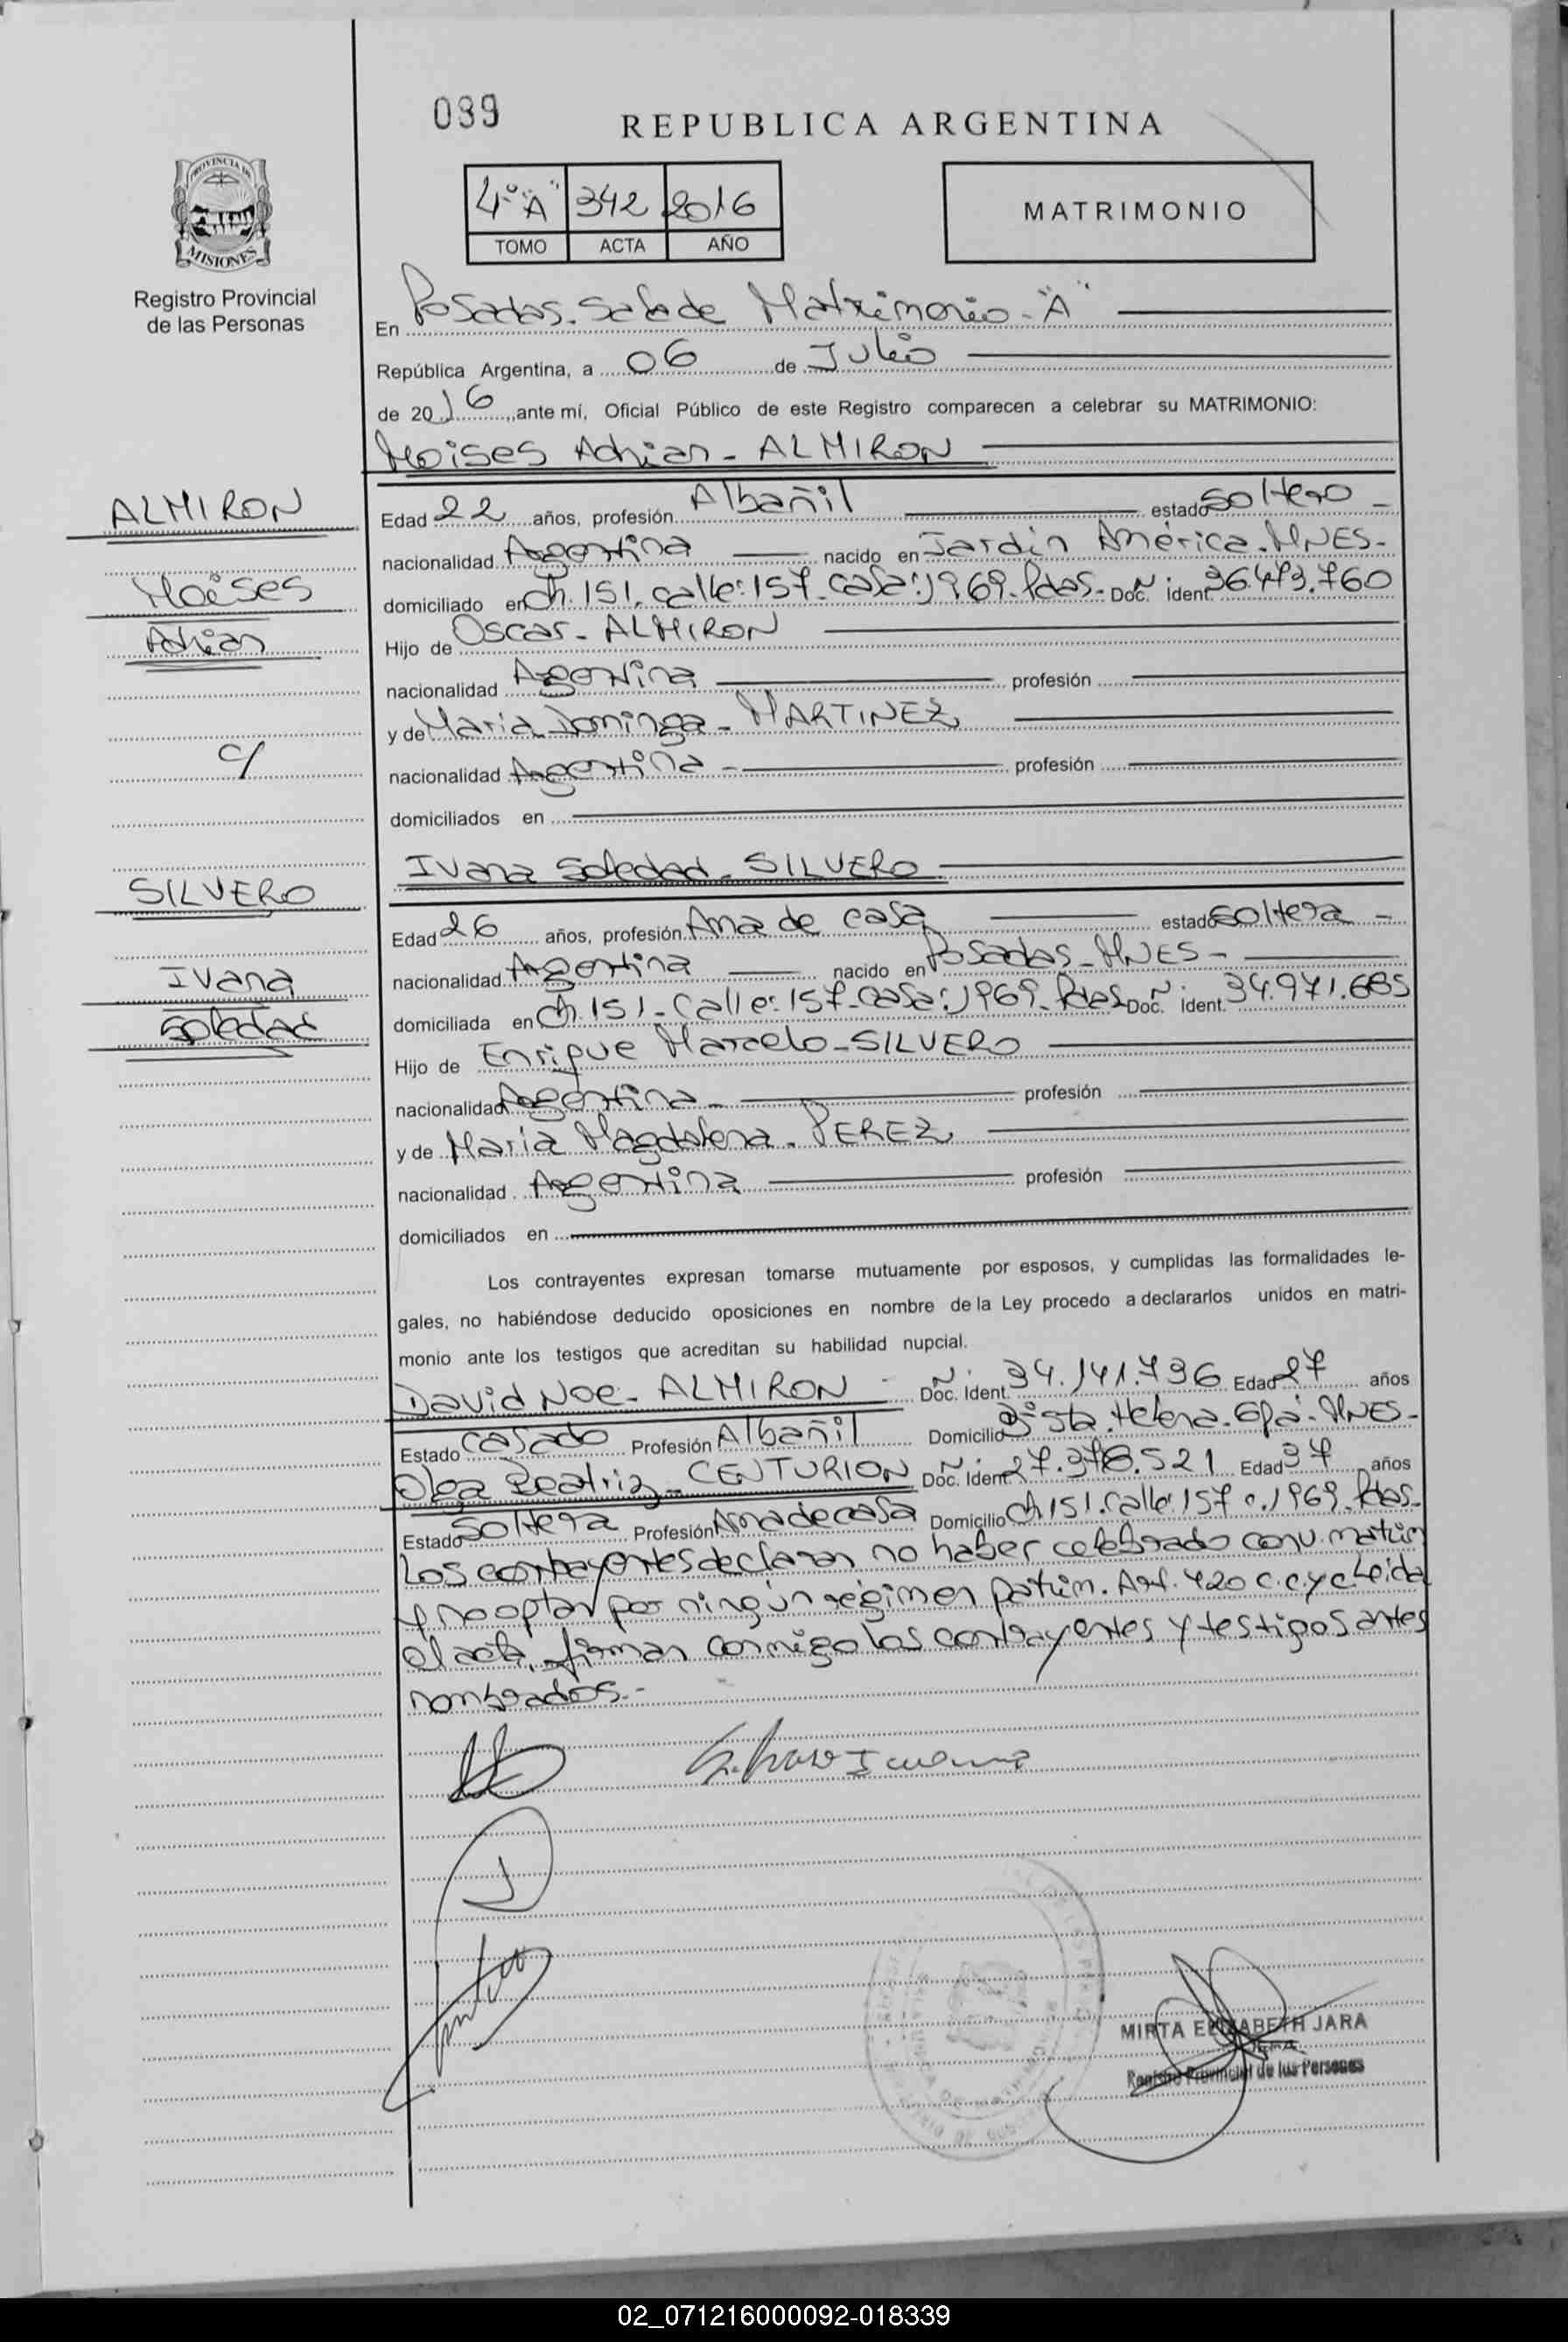 099
REPUBLICA ARGENTINA
PROVINCIA DE
MISIONES
Registro Provincial
de las Personas
4º "A" 342 2016
TOMO ACTA AÑO
MATRIMONIO
En Posadas. Sala de Matrimonio - "A"
República Argentina, a 06 de Julio
de 2016, ante mí, Oficial Público de este Registro comparecen a celebrar su MATRIMONIO:
Moises Adrian - ALMIRON
ALMIRON
Moises
Adrian
c/
SILVERO
Ivana
Soledad
Edad 22 años, profesión Albañil estado soltero -
nacionalidad Argentina nacido en Jardin América. MNES-
domiciliado en Ch. 151. calle: 157 - casa: 1969. Pdas - Doc. ident. 36.473.760
Hijo de Oscar - ALMIRON
nacionalidad Argentina profesión
y de Maria Dominga - MARTINEZ
nacionalidad Argentina - profesión
domiciliados en
Ivana Soledad - SILVERO
Edad 26 años, profesión Ama de casa estado soltera -
nacionalidad Argentina nacido en Posadas - MNES -
domiciliada en Ch. 151 - Calle: 157 - casa: 1969 - Pdas Doc. ident. 34.971.685
Hijo de Enrique Marcelo - SILVERO
nacionalidad Argentina - profesión
y de Maria Magdalena - PEREZ
nacionalidad Argentina profesión
domiciliados en
Los contrayentes expresan tomarse mutuamente por esposos, y cumplidas las formalidades le-
gales, no habiéndose deducido oposiciones en nombre de la Ley procedo a declararlos unidos en matri-
monio ante los testigos que acreditan su habilidad nupcial.
David Noe - ALMIRON - Doc. Ident. 34.141.736 Edad 27 años
Estado casado Profesión Albañil Domicilio Bº Sta. Helena. Gpá. MNES -
Olga Beatriz - CENTURION Doc. Ident. 27.378.521 Edad 37 años
Estado soltera Profesión Ama de casa Domicilio Ch 151. calle 157 c. 1969. Pdas -
Los contrayentes declaran no haber celebrado conv. matrim
y no optar por ningún régimen patrim. Art. 420 C. C y C Leida
el acta, firman conmigo los contrayentes y testigos antes
nombrados. -
Silvero Ivana
MIRTA ELIZABETH JARA
JEFA
Registro Provincial de las Personas
02_071216000092-018339